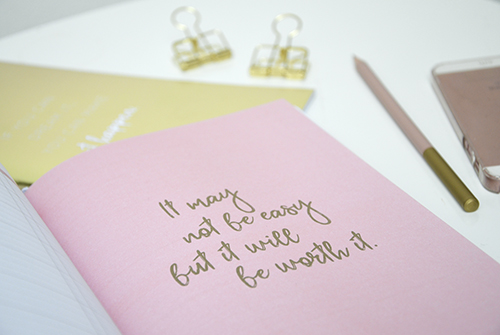 It may
not be easy
but it will
be worth it.
happen